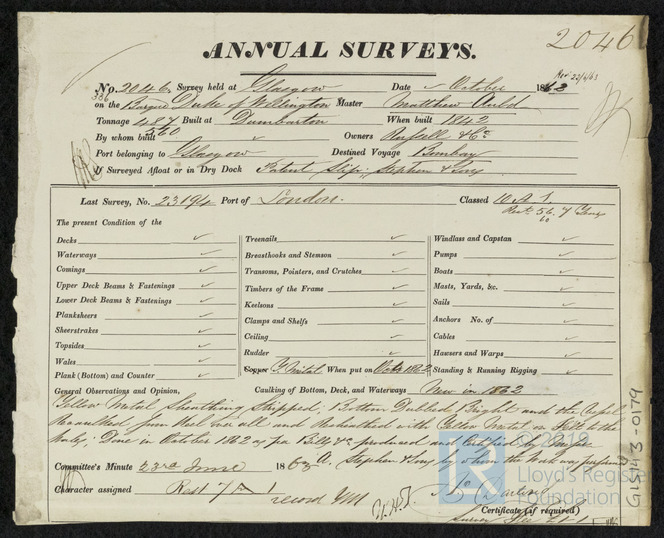 2046
ANNUAL SURVEYS.
Nov 22/4/63
No. 2046 Survey held at Glasgow Date October 1862
336
on the Barque Duke of Wellington Master Matthew Auld
Tonnage 487 Built at Dumbarton When built 1842
560
By whom built Owners Russell & Co
Port belonging to Glasgow Destined Voyage Bombay
If Surveyed Afloat or in Dry Dock Patent Slip, Stephen & Sons
Last Survey, No. 23194 Port of London. Classed 10 A 1.
Rest. 56. 7 Years
60
The present Condition of the
Decks Treenails Windlass and Capstan
Waterways Breasthooks and Stemson Pumps
Comings Transoms, Pointers, and Crutches Boats
Upper Deck Beams & Fastenings Timbers of the Frame Masts, Yards, &c.
Lower Deck Beams & Fastenings Keelsons Sails
Planksheers Clamps and Shelfs Anchors No. of
Sheerstrakes Ceiling Cables
Topsides Rudder Hawsers and Warps
Wales Copper Y. Metal When put on Octr 1862 Standing & Running Rigging
Plank (Bottom) and Counter
General Observations and Opinion, Caulking of Bottom, Deck, and Waterways New in 1862
Yellow Metal Sheathing Stripped, Bottom Dubbed Bright and the Vessel
Recaulked from Keel up all and Resheathed with Yellow Metal on Felt to the
Done in October 1862 as per Bill &c produced and Certified by Messrs
A. Stephen & Sons by whom the Work was performed
Committee's Minute 23rd June 1863
Character assigned Rest 7 A 1
record YM
Certificate (if required)
© 2019
Lloyd's Register
Foundation
GLS143-0179